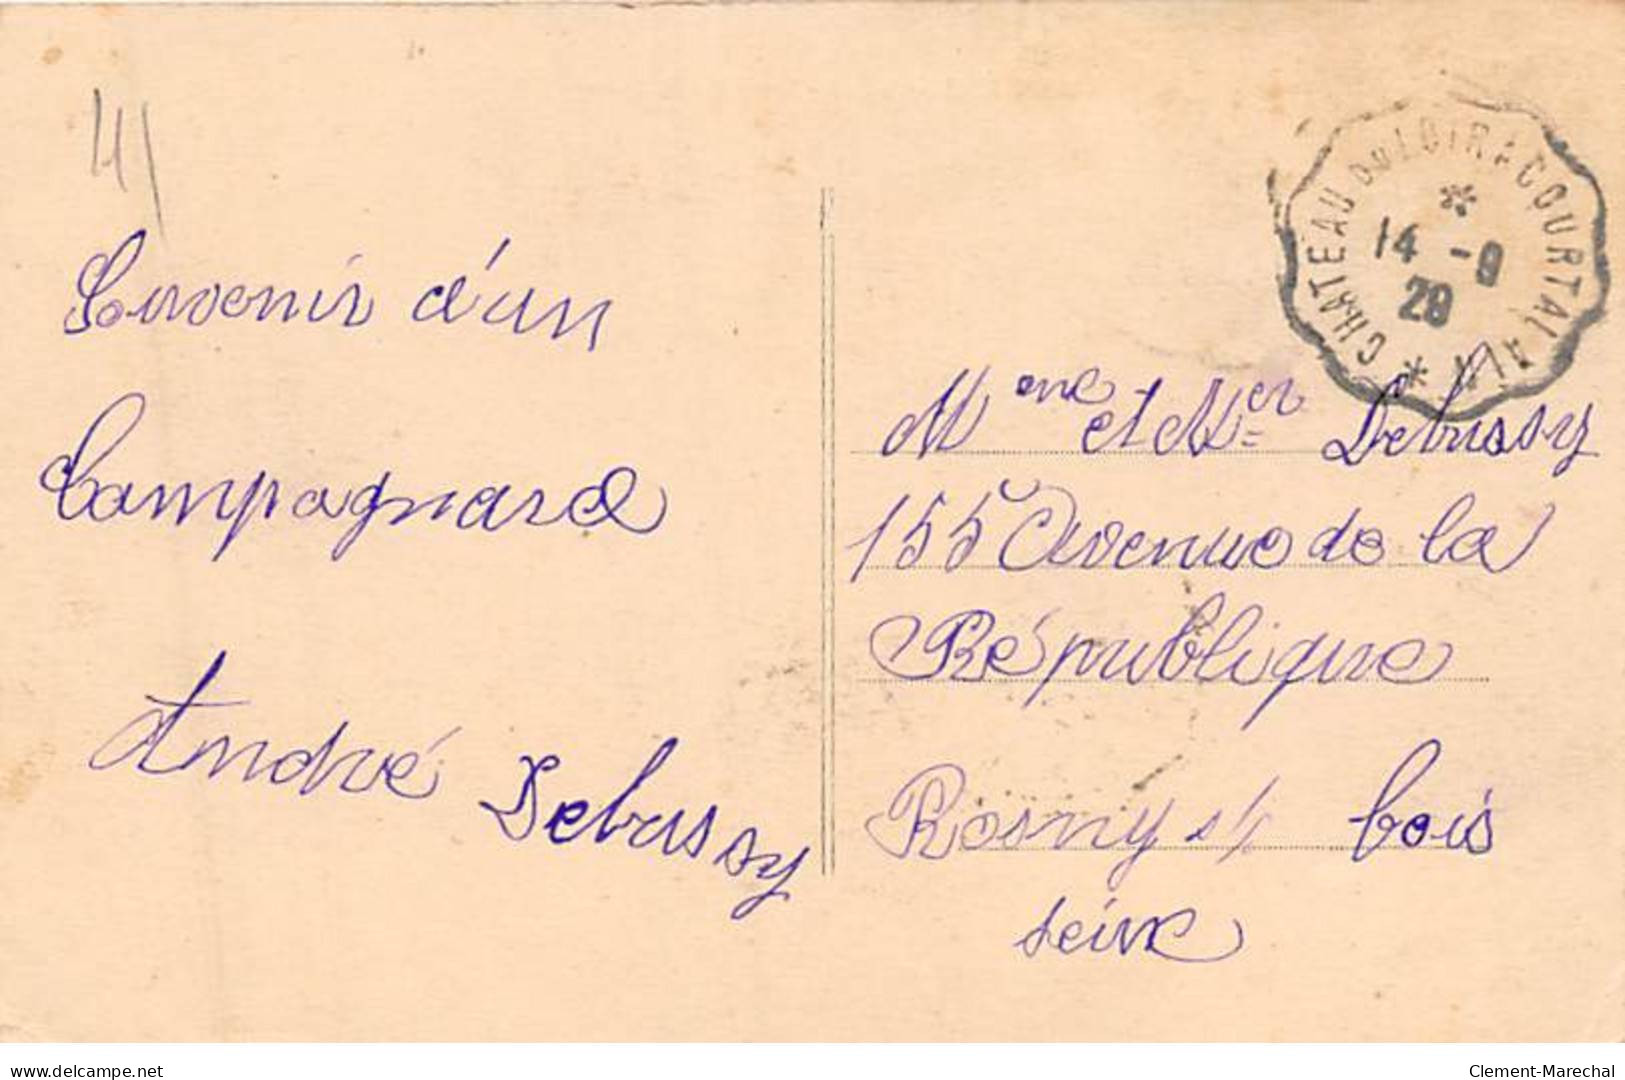 41
Souvenir d'un
Campagnard
André Debussy
CHATEAU DU LOIR A COURTALAIN
14 -9
28
Mme et Mer Debussy
155 Avenue de la
République
Rosny s/s bois
seine
delcampe.net
Clement-Marechal